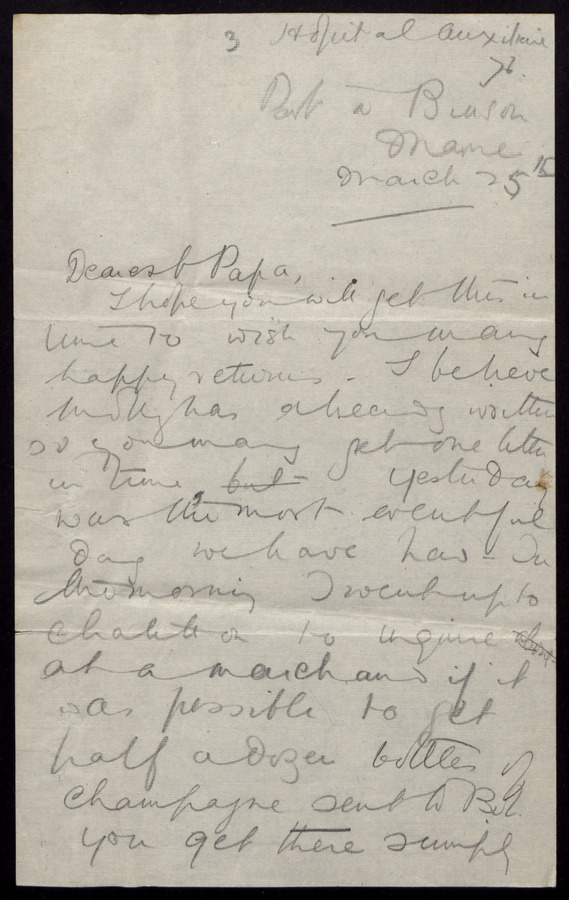 3 Hospital Auxiliaire
76.
Port à Binson
Marne
March 25th
Dearest Papa,
I hope you will get this in
time to wish you many
happy returns - I believe
Molly has already written
so you may get one letter
in time but yesterday
was the most eventful
day we have had - In
the morning I went up to
Chatillon to inquire about
at a marchand if it
was possible to get
half a dozen bottles of
champagne sent to Bel.
you get there simply